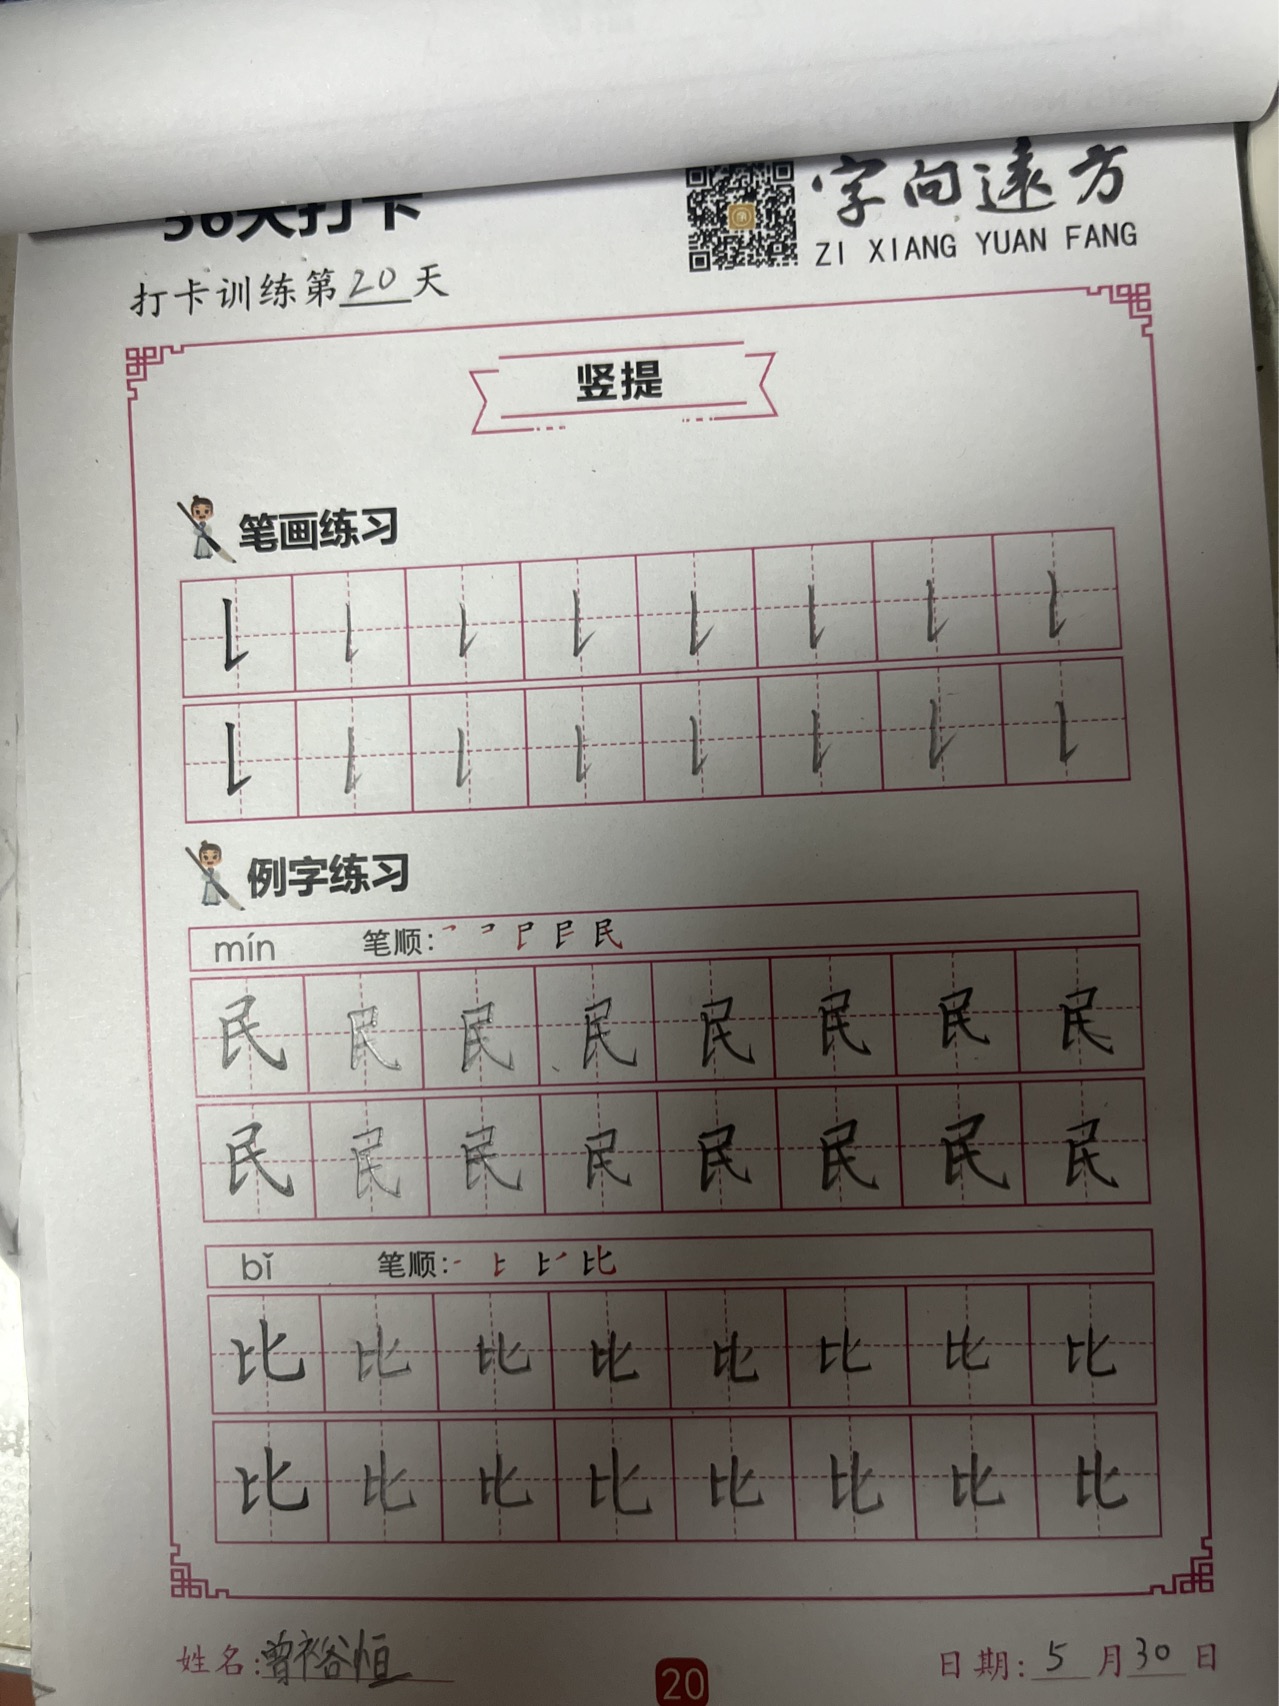 36天打卡
字向遠方
ZI XIANG YUAN FANG
打卡训练第20天
竖提
笔画练习
例字练习
mín 笔顺: 民
民 民 民 民 民 民 民 民
民 民 民 民 民 民 民 民
bǐ 笔顺: 比
比 比 比 比 比 比 比 比
比 比 比 比 比 比 比 比
姓名:曾裕恒
日期:5月30日
20